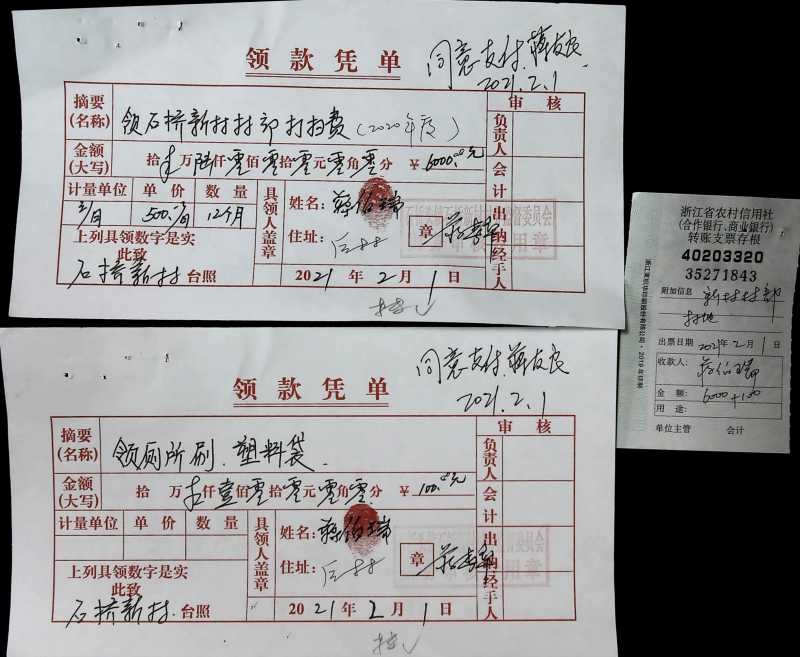 领款凭单
同意支付.蒋友良
2021.2.1
摘要(名称) 领石桥新村村部打扫费(2020年度)
审核
金额(大写) 拾 万陆仟零佰零拾零元零角零分 ¥6000.00元
负责人
计量单位 单价 数量
会计
500 12个月
具领人盖章
姓名:蒋伯瑞
住址:后88
章
出纳经手人
上列具领数字是实
此致
石桥新村 台照
2021年2月1日
领款凭单
同意支付.蒋友良
2021.2.1
摘要(名称) 领厕所刷.塑料袋.
审核
金额(大写) 拾 万 仟壹佰零拾零元零角零分 ¥100.00元
负责人
计量单位 单价 数量
会计
具领人盖章
姓名:蒋伯瑞
住址:后88
章
出纳经手人
上列具领数字是实
此致
石桥新村. 台照
2021年2月1日
浙江省农村信用社
(合作银行、商业银行)
转账支票存根
40203320
35271843
附加信息 新村村部
扫地
出票日期 2021年2月1日
收款人:蒋伯瑞
金额:6000+100
用途:
单位主管 会计